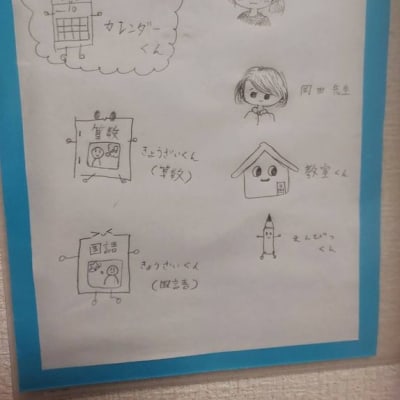 カレンダー
くん
岡田先生
算数
きょうざいくん
(算数)
教室くん
えんぴつ
くん
国語
きょうざいくん
(国語)